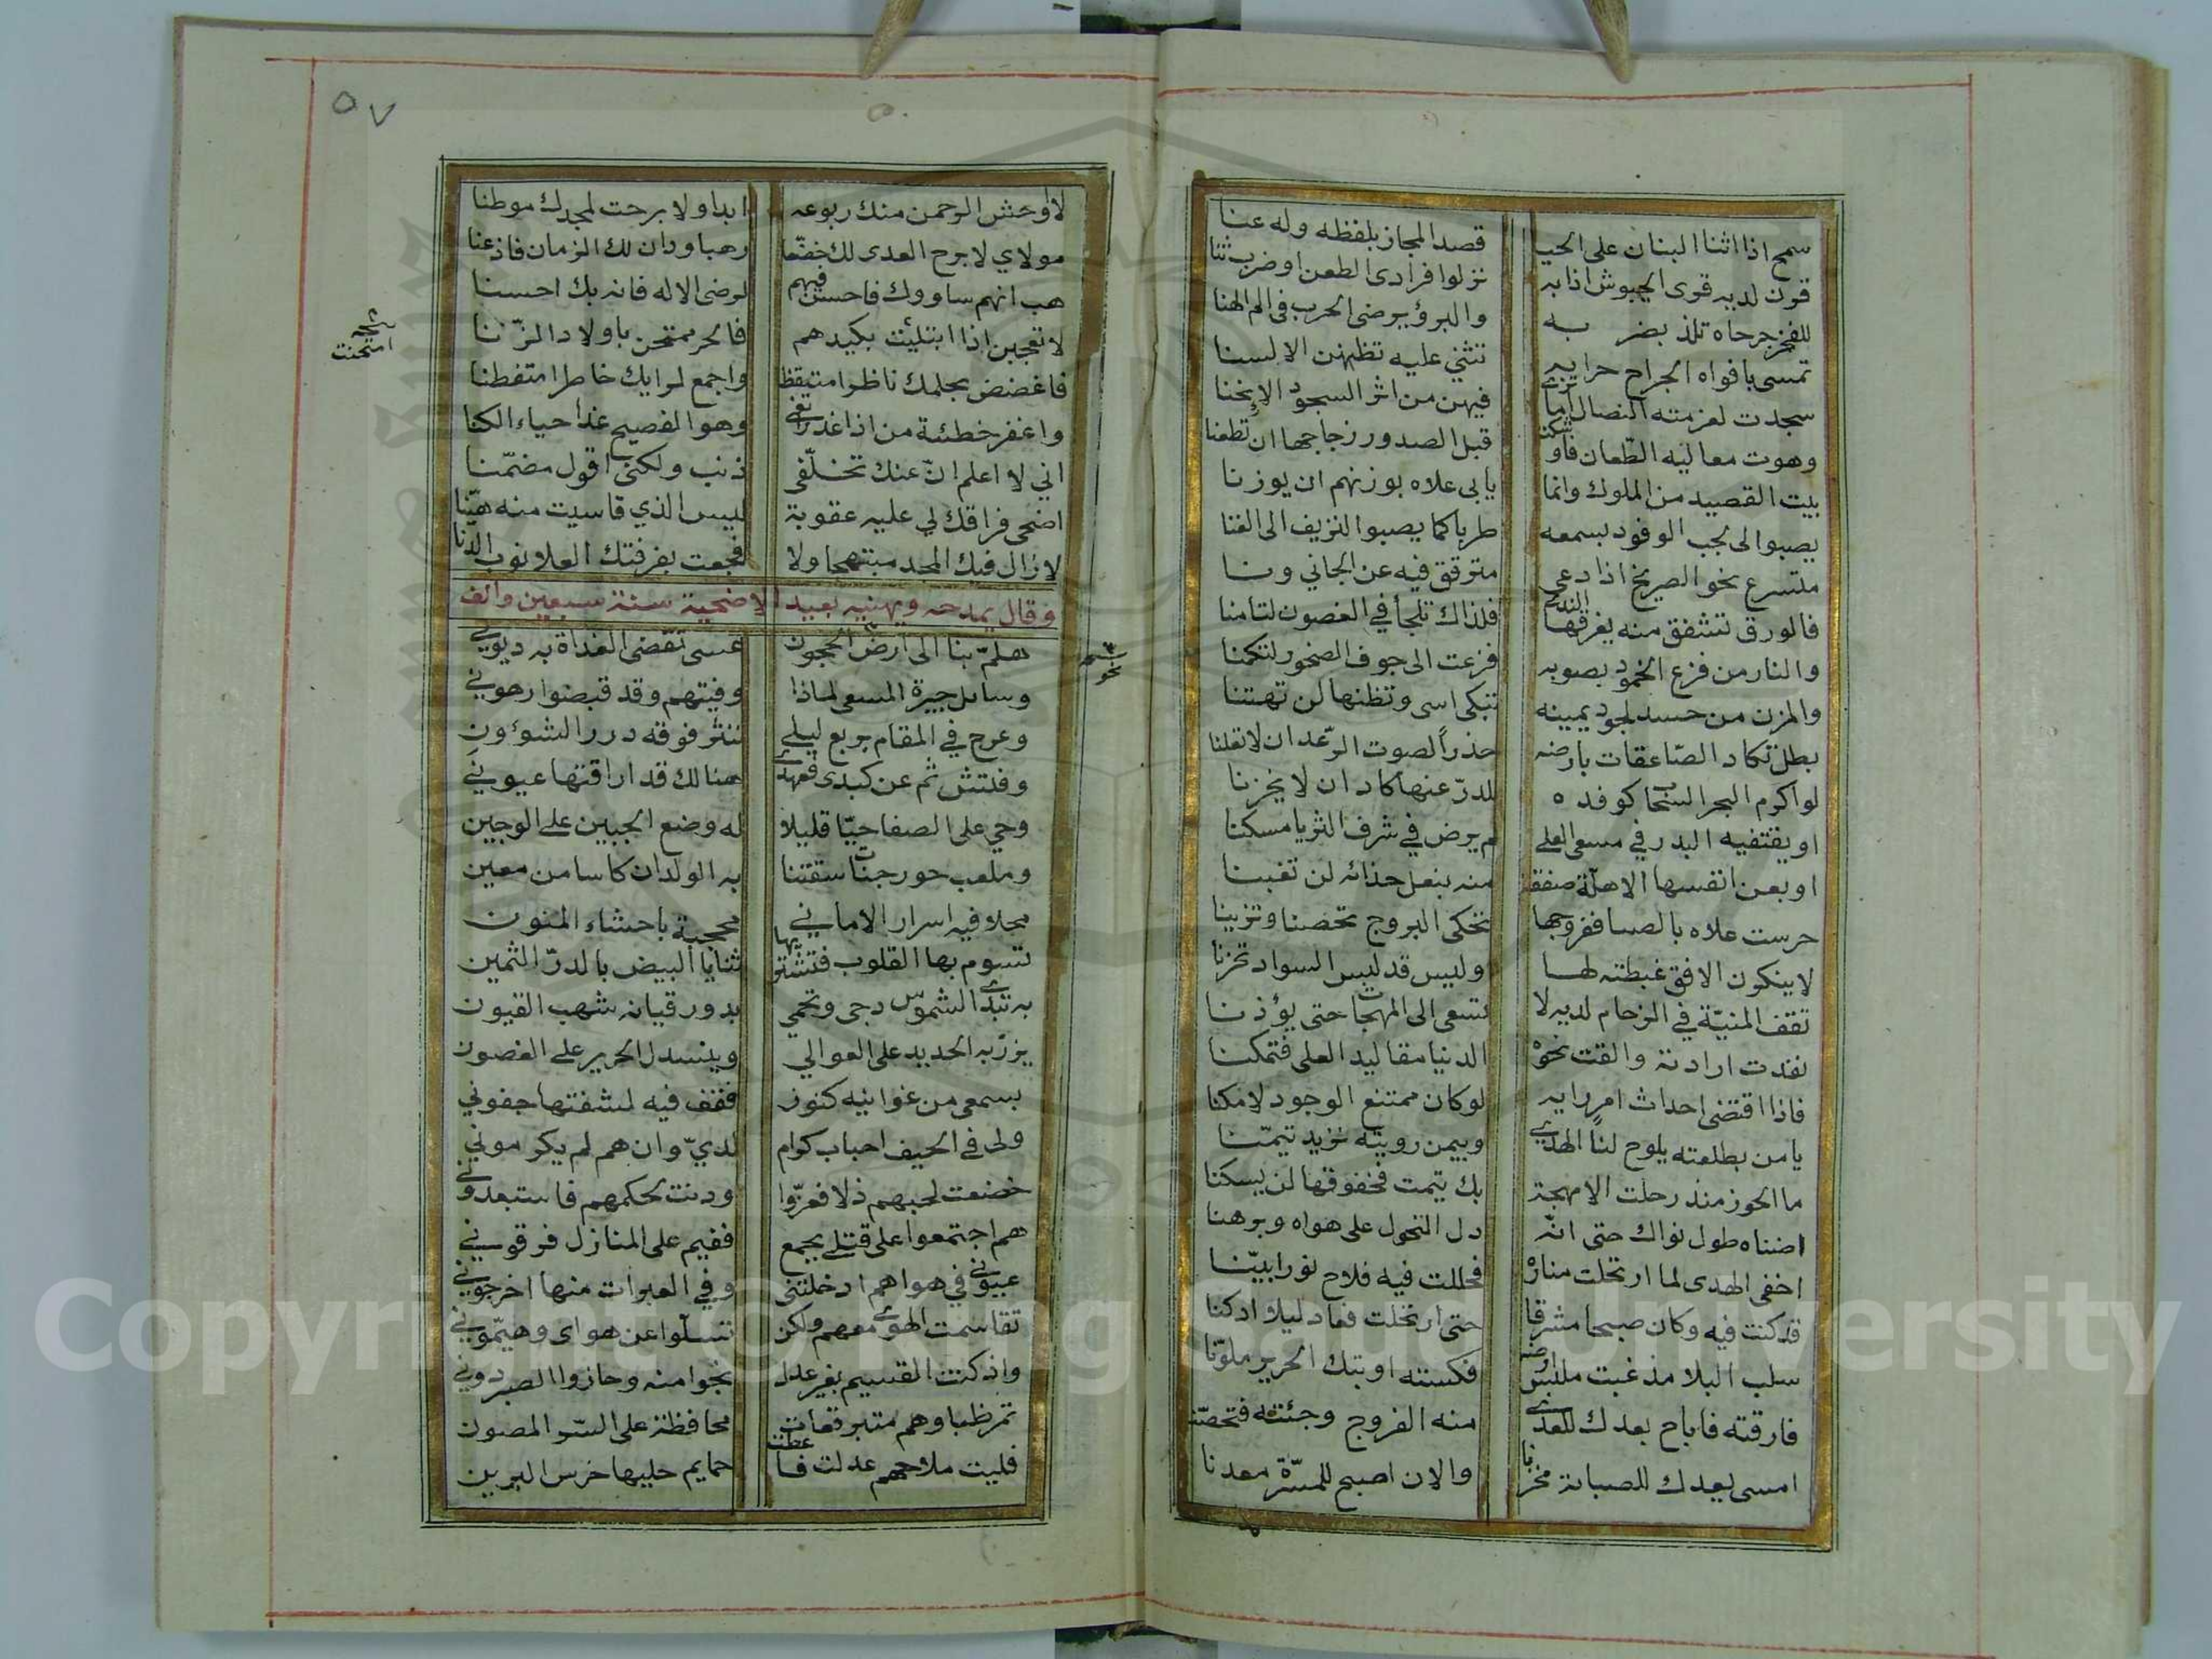 سمح اذا اثنا البنان على الحيا قصد المجاز بلفظه وله عنا
قون لديه قوى الجيوش اذا به نزلوا فرادى الطعن او ضرب ثنا
للفخر جرحاه تلذ بضر به والبرؤ يرضى الحرب في الم الهنا
تمسى بافواه الجراح حرابه تثني عليه تظنهن الالسنا
سجدت لعزمته النصال اما ترى فيهن من اثر السجود الانحنا
وهوت معاليه الطعان فاوشكت قبل الصدور زجاجها ان تطعنا
بيت القصيد من الملوك وانما يابى علاه بوزنهم ان يوزنا
يصبوا الى نجب الوفود بسمعه طربا كما يصبوا النزيف الى الغنا
متسرع نحو الصريخ اذا دعى متوقف فيه عن الجاني ونا
فالورق تشفق منه يغرقها الندى فلذاك تلجأ في الغصون لتامنا
والنار من فزع الخمود بصوبه فزعت الى جوف الصخور لتكمنا
والمزن من حسد لجود يمينه تبكى اسى وتظنها لن تهتنا
بطل تكاد الصاعقات بارضه حذراً لصوت الرعد ان لا تعلنا
لو اكرم البحر السحاب كوفده للدر عنها كاد ان لا يخزنا
او يقتفيه البدر في مسعى العلى لم يرض في شرف الثريا مسكنا
او بعن انفسها الاهلة صفقة منه بنعل حذائه لن تغبنا
حرست علاه بالصبا ففروجها تحكى البروج تحصنا وتزينا
لا ينكرن الافق غبطته لها اوليس قد لبس السواد تحزنا
تقف المنية في الزحام لديه لا تسعى الى المهجات حتى يؤذنا
نفذت ارادته والقت نحوه الدنيا مقاليد العلى فتمكنا
فاذا اقتضى احداث امر رايه لو كان ممتنع الوجود لامكنا
يا من بطلعته يلوح لنا الهدى وبيمن رويته نزيد تيمنا
ما الحوز منذ رحلت الا مهجة بك تيمت فخفوقها لن يسكنا
اضناه طول نواك حتى انه دل النحول على هواه وبرهنا
اخفى الهدى لما ارتحلت مناره فحللت فيه فلاح نورا بينا
قد كنت فيه وكان صبحا مشرقا حتى ارتحلت فعاد ليلا ادكنا
سلب البلا مذ غبت ملبس ارضه فكسته اوبتك الحرير ملونا
فارقته فاباح بعدك للعدى منه الفروج وجئته فتحصنا
امسى لبعدك للصبابة مخزنا والان اصبح للمسرة معدنا
٥٧
لا اوحش الرحمن منك ربوعه ابدا ولا برحت لمجدك موطنا
مولاي لا برح العدى لك خضعا رهبا ودان لك الزمان فاذعنا
هب انهم ساووك فاحسن فيهم لرضى الاله فانه بك احسنا
لا تعجبن اذا ابتليت بكيدهم فالحر ممتحن باولاد الزنا
امتحنت
فاغضض بحلمك ناظرا متيقظا واجمع لرايك خاطرا متفطنا
واغفر خطئية من اذا غدر انى وهو الفصيح غذا حياء الكنا
اني لا اعلم ان عنك تخلفى ذنب ولكنى اقول مضمنا
اضحى فراقك لي عليه عقوبة ليس الذي قاسيت منه هينا
لا زال فيك المجد مبتهجا ولا فجعت بفرقتك العلا نوب الدنا
وقال يمدحه ويهنيه بعيد الاضحية سنة سبعين والف
هلم بنا الى ارض الحجون عسى تقضى الغداة به ديوني
نحو
وسائل جيرة المسعى لماذا وفيتهم وقد قبضوا رهوني
وعرج في المقام بربع ليلى تنثر فوقه درر الشوءون
وفتش ثم عن كبدى فعهدى هنالك قد اراقتها عيوني
وحي على الصفا حيا قليلا له وضع الجبين على الوجين
وملعب حور جنات سقتنا به الولدان كاسا من معين
محلا فيه اسرار الاماني محجبة باحشاء المنون
تسوم بها القلوب فتشتريها ثنايا البيض بالدر الثمين
به تبدى الشموس دجى وتحمي بدور قيانه شهب القيون
يزر به الحديد على العوالي وينسدل الحرير على الغصون
بسمعى من غوانيه كنوز فقف فيه لشفتها جفوني
ولى في الخيف احباب كرام لدي وان هم لم يكرموني
خضعت لحبهم ذلا فعزوا ودنت لحكمهم فاستبعدوني
هم اجتمعوا على قتلى بجمع ففيم على المنازل فرقوني
عيوني في هواهم ادخلتنى وفي العبرات منها اخرجوني
تقاسمت الهوى معهم ولكن تسلوا عن هواى وهيموني
واذ كنت القسيم بغير عدل نجوا منه وحازوا الصبر دوني
تمر ظبا وهم متبرقعات محافظة على السر المصون
فليت ملاحهم عدلت فاعطت حمايم حليها خرس البرين
Copyright © King Saud University